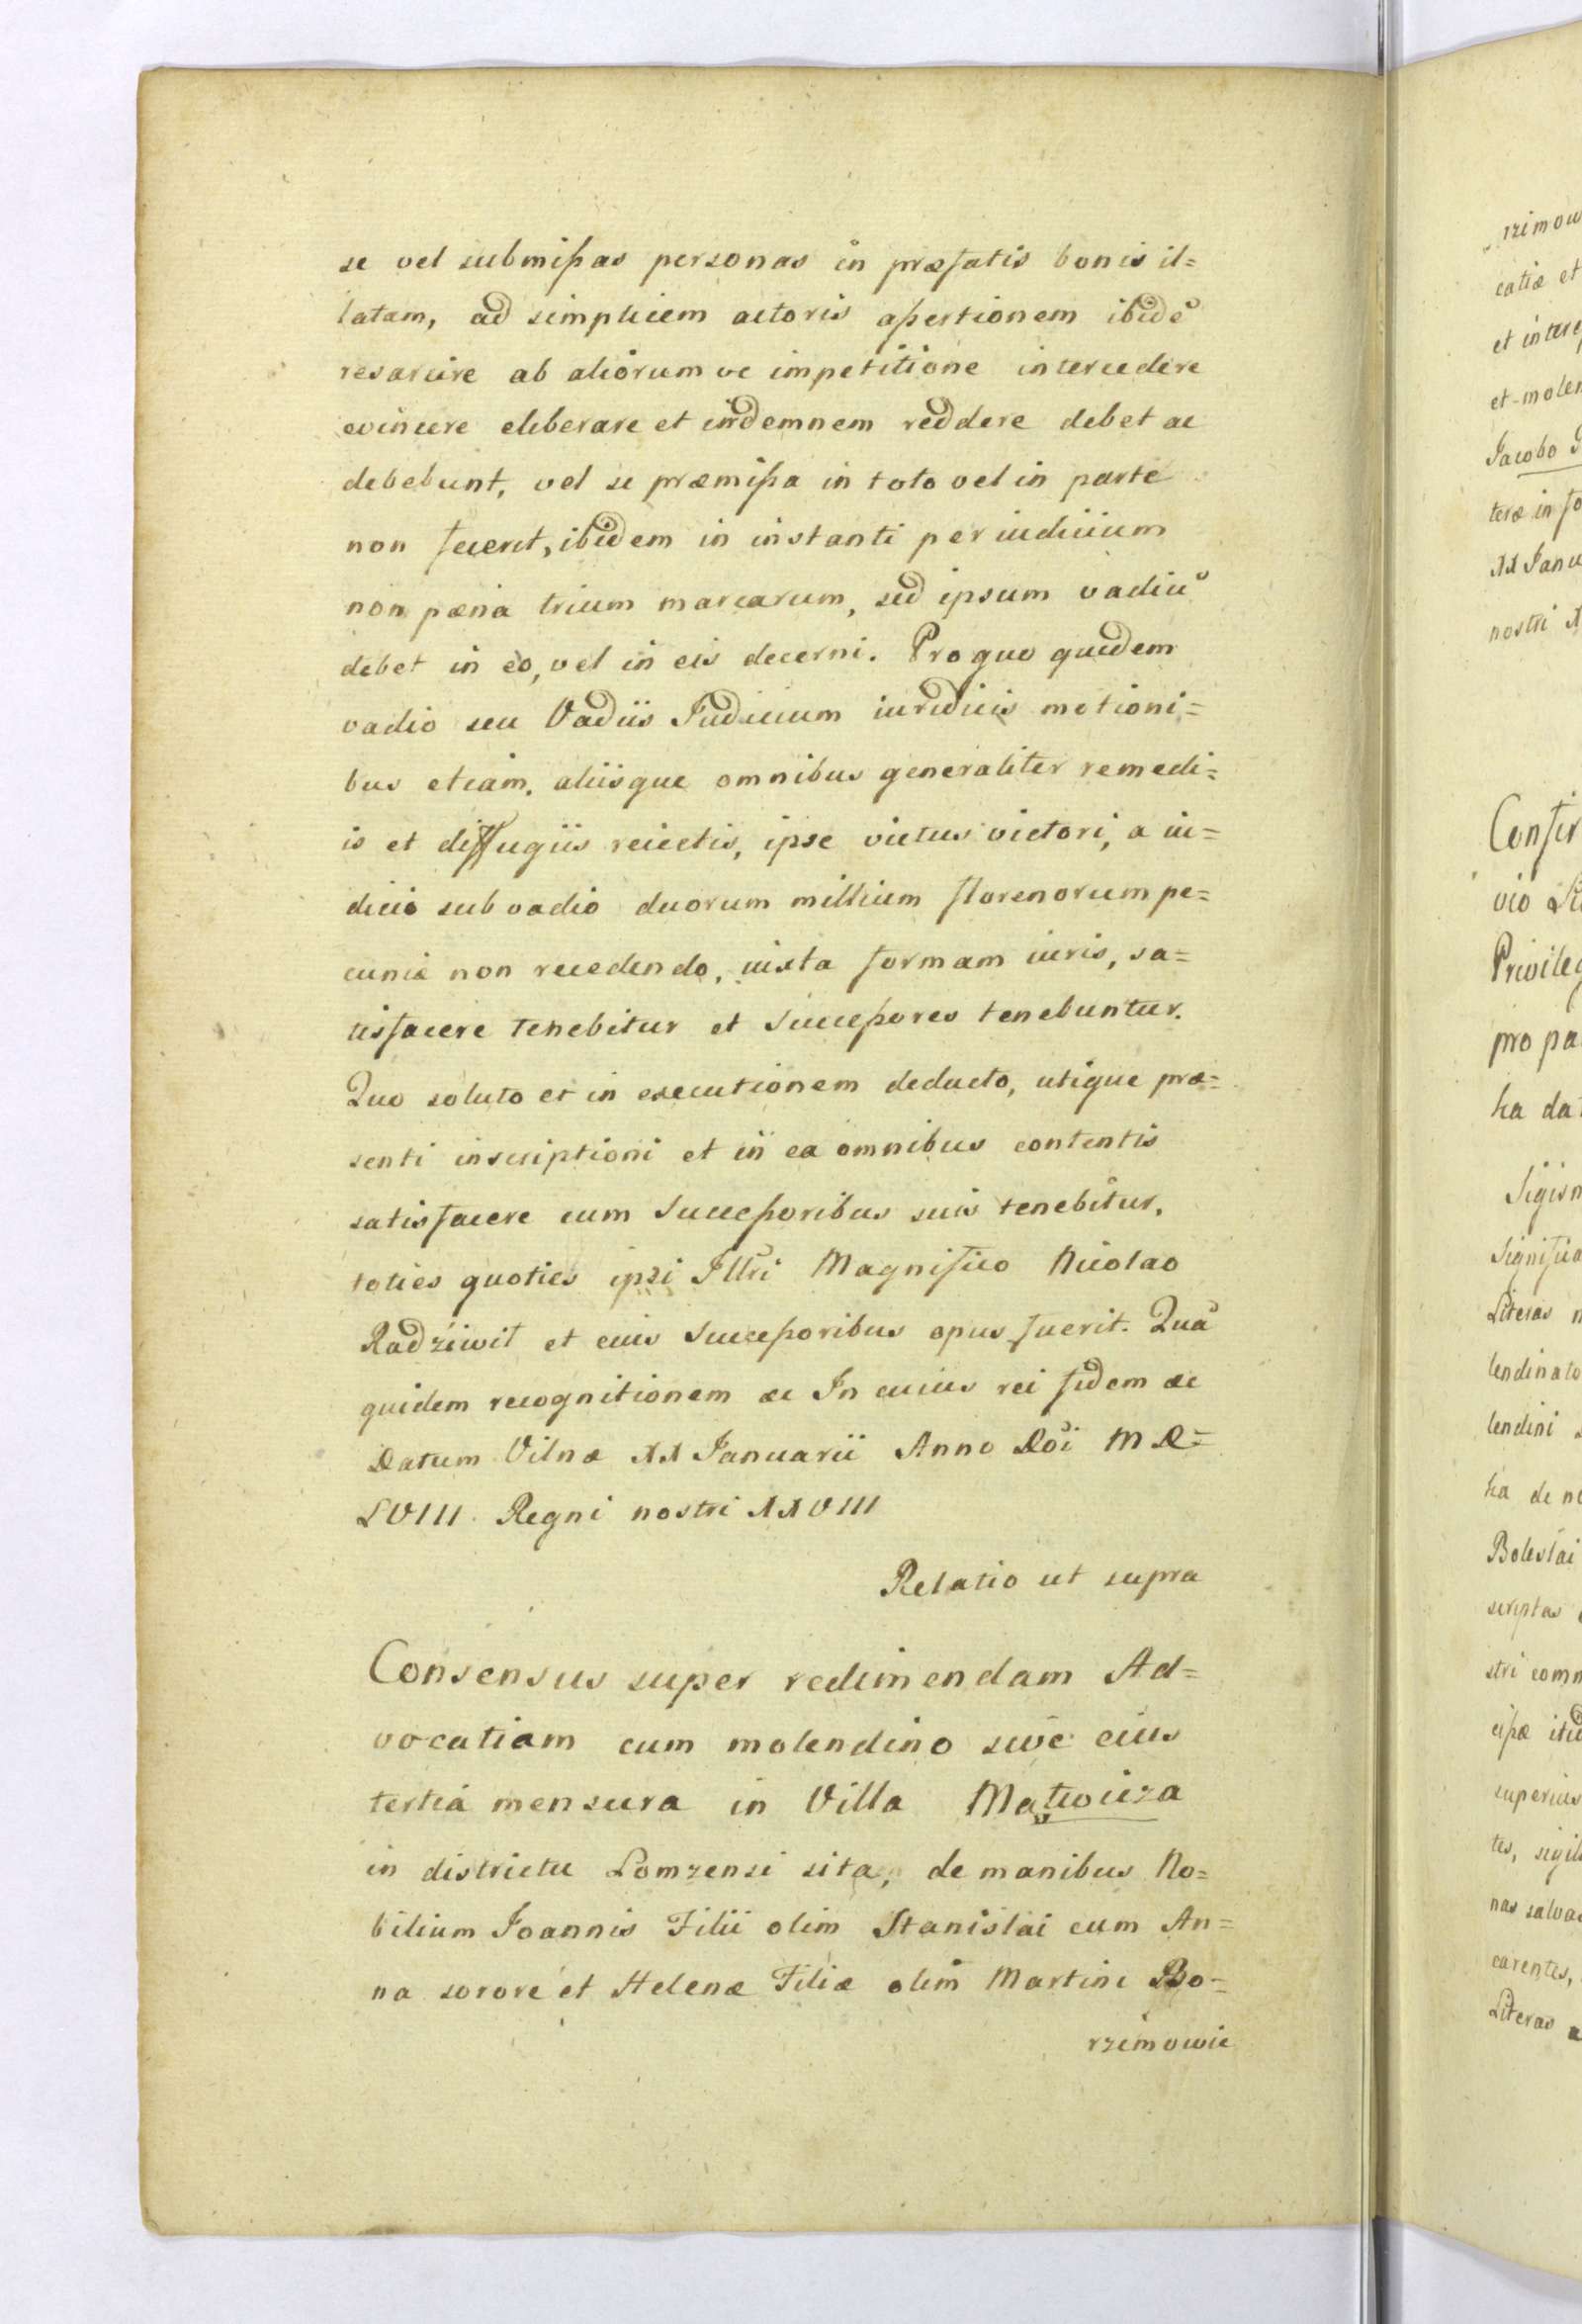 se vel submissas personas in præfatis bonis il=
latam, ad simplicem actoris assertionem ibidē
resarcire ab aliorum ve impetitione intercedere
evincere eliberare et indemnem reddere debet ac
debebunt, vel se præmissa in toto vel in parte
non fecerit, ibidem in instanti per iudicium
non pæna trium marcarum, sed ipsum vadiū
debet in eo, vel in eis decerni. Pro quo quidem
vadio seu Vadiis Iudicium iuridicis motioni=
bus etiam, aliisque omnibus generaliter remedi=
is et diffugiis reiectis, ipse victus victori, a iu=
dicio sub vadio duorum millium florenorum pe=
cuniæ non recedendo, iuxta formam iuris, sa=
tisfacere tenebitur et Successores tenebuntur.
Quo soluto et in executionem deducto, utique præ=
senti inscriptioni et in ea omnibus contentis
satisfacere cum Successoribus suis tenebitur,
toties quoties ipsi Illri Magnifico Nicolao
Radziwil et eius Successoribus opus fuerit. Quā
quidem recognitionem &c In cuius rei fidem &c
Datum Vilnæ XX Ianuarii Anno Dōi MD=
LVIII. Regni nostri XXVIII
Relatio ut supra
Consensus super redimendam Ad=
vocatiam cum molendino sive eius
tertia mensura in Villa Matwicza
in districtu Lomzensi sita, de manibus No=
bilium Ioannis Filii olim Stanislai cum An=
na sorore et Helenæ Filiæ olim Martini Bo=
rzimowie
rzimow
catiæ et
et
Iacobo
teræ in fo
XX Ianu
nostri
Confir
vio
Privileg
pro pa
ka da
Sigism
Significa
Literas
lendinato
lendini
ka de
Boleslai
scriptas
stri comm
superius
tes, sigil
nas salva
carentes,
Literas